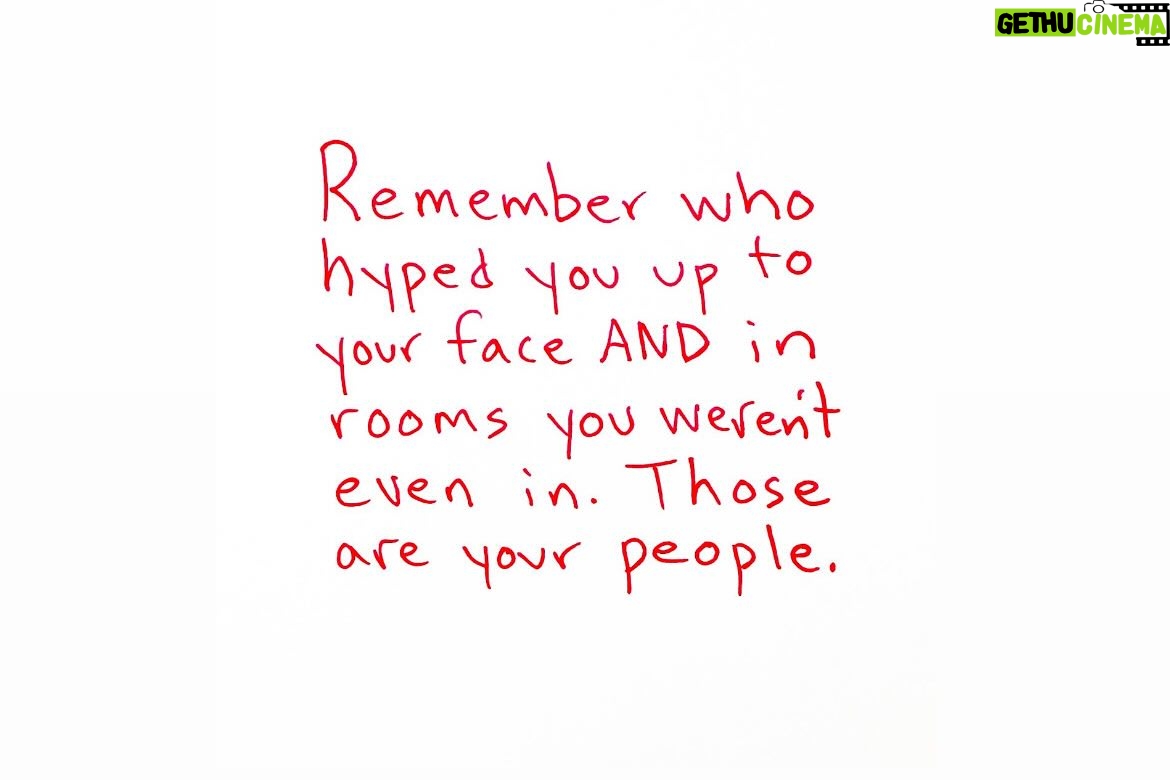 GETHU CINEMA
Remember who
hyped you up to
your face AND in
rooms you weren't
even in. Those
are your people.